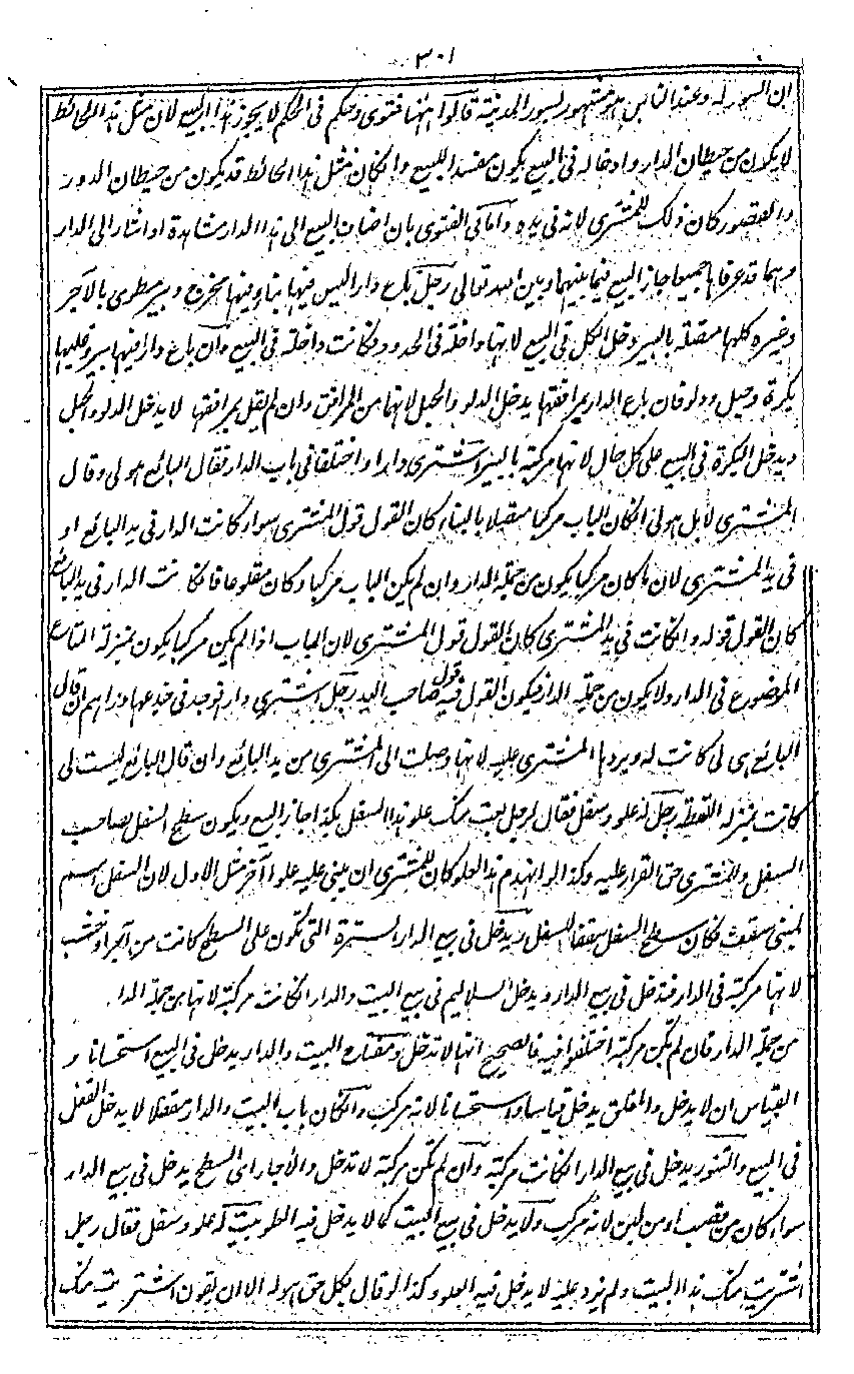 ٣٠١
ان السور له وعند الناس هو مشهور بسور المدينة قالوا ههنا فتوى وحكم فى الحكم لا يجوز هذا البيع لان مثل هذا الحائط
لا يكون من حيطان الدار وادخاله فى البيع يكون مفسدا للبيع وانكان مثل هذا الحائط قد يكون من حيطان الدور
والقصور كان ذلك للمشترى لانه فى يده واما فى الفتوى بان اضاف البيع الى هذا الدار مشاهدة او اشار الى الدار
وهما قد عرفاها جميعا جاز البيع فيما بينهما وبين الله تعالى رجل باع دارا ليس فيها بناء وفيها مخرج وبير مطوى بالآجر
وغيره كلها متصلة بالبير دخل الكل فى البيع لانها داخلة فى الحدود فكانت داخلة فى البيع وان باع دارا فيها بير وعليها
بكرة وحبل ودلو فان باع الدار بمرافقها يدخل الدلو والحبل لانهما من المرافق وان لم يقل بمرافقها لا يدخل الدلو والحبل
ويدخل البكرة فى البيع على كل حال لانها مركبة بالبير اشترى دارا واختلفا فى باب الدار فقال البائع هو لى وقال
المشترى لا بل هو لى انكان الباب مركبا متصلا بالبناء كان القول قول المشترى سواء كانت الدار فى يد البائع او
فى يد المشترى لان ما كان مركبا يكون من جملة الدار وان لم يكن الباب مركبا وكان مقلوعا فانكانت الدار فى يد البائع
كان القول قوله وانكانت فى يد المشترى كان القول قول المشترى لان الباب اذا لم يكن مركبا يكون بمنزلة المتاع
الموضوع فى الدار ولا يكون من جملة الدار فيكون القول فيه قول صاحب اليد رجل اشترى دارا فوجد فى جذعها دراهم ان قال
البائع هى لى كانت له ويردها المشترى عليه لانها وصلت الى المشترى من يد البائع وان قال البائع ليست لى
كانت بمنزلة اللقطة رجل له علو وسفل فقال لرجل بعت منك علو هذا السفل بكذا جاز البيع ويكون سطح السفل لصاحب
السفل وللمشترى حق القرار عليه وكذا لو انهدم هذا العلو كان للمشترى ان يبنى عليه علوا آخر مثل الاول لان السفل اسم
لمبنى مسقف فكان سطح السفل سقفا للسفل ويدخل فى بيع الدار السترة التى تكون على السطح كانت من آجر او خشب
لانها مركبة فى الدار فتدخل فى بيع الدار ويدخل السلاليم فى بيع البيت والدار انكانت مركبة لانها من جملة الدا
من جملة الدار فان لم تكن مركبة اختلفوا فيه فالصحيح انها لا تدخل ومفتاح البيت والدار يدخل فى البيع استحسانا و
القياس ان لا يدخل والغلق يدخل قياسا واستحسانا لانه مركب وانكان باب البيت والدار مقفلا لا يدخل القفل
فى البيع والتنور يدخل فى بيع الدار انكانت مركبة وان لم تكن مركبة لا تدخل والاجار اى السطح يدخل فى بيع الدار
سواء كان من قصب او من لبن لانه مركب ولا يدخل فى بيع البيت كما لا يدخل فيه الطريق بيت له علو وسفل فقال رجل
اشتريت منك هذا البيت ولم يزد عليه لا يدخل فيه العلو وكذا لو قال بكل حق هو له الا ان يقول اشتريت منك